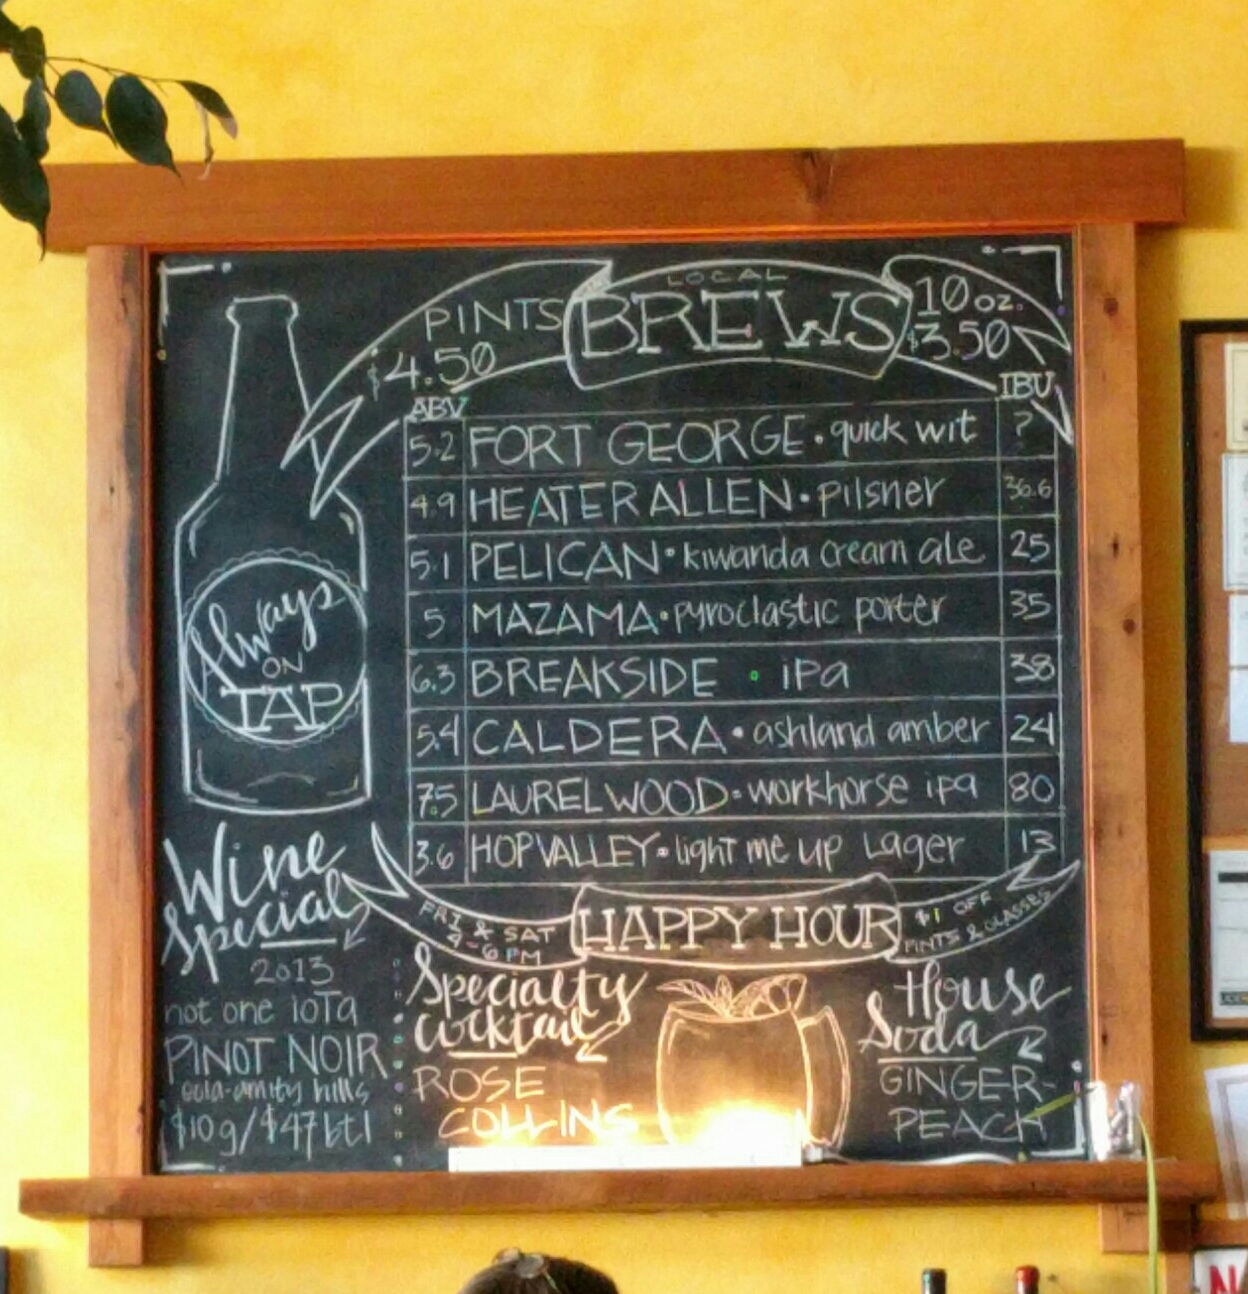 LOCAL
PINTS
$4.50
BREWS
10 oz.
$3.50
ABV
IBU
5.2 FORT GEORGE • quick wit ?
4.9 HEATER ALLEN • pilsner 36.6
5.1 PELICAN • kiwanda cream ale 25
5 MAZAMA • pyroclastic porter 35
6.3 BREAKSIDE • ipa 38
5.4 CALDERA • ashland amber 24
7.5 LAURELWOOD • workhorse ipa 80
3.6 HOP VALLEY • light me up lager 13
Always
ON
TAP
FRI & SAT
4-6 PM
HAPPY HOUR
$1 OFF
PINTS & GLASSES
Wine
Special
2013
not one iota
PINOT NOIR
eola-amity hills
$10g/$47btl
Specialty
Cocktail
ROSE
COLLINS
House
Soda
GINGER-
PEACH